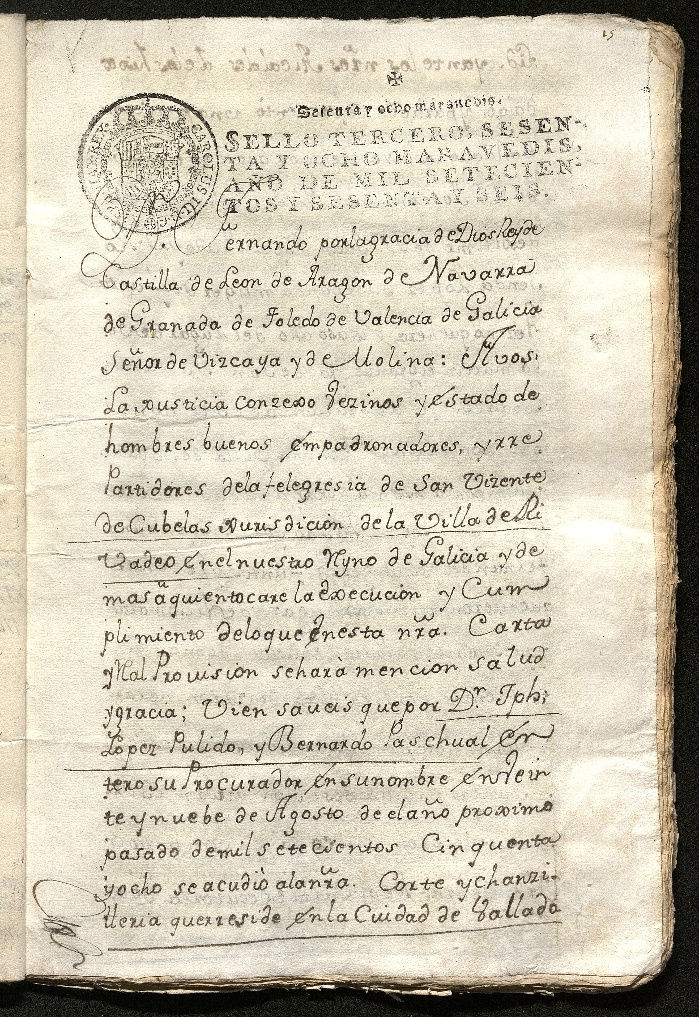 15
Sesenta y ocho maravedis.
SELLO TERCERO, SESEN-
TA Y OCHO MARAVEDIS,
AÑO DE MIL SETECIEN-
TOS Y SESENTA Y SEIS.
CAROLUS III
ernando porlagracia de Dios Rey de
Castilla de Leon de Aragon de Navarra
de Granada de Toledo de Valencia de Galicia
Señor de Vizcaya y de Molina: Avos.
La xusticia conzexo vezinos y estado de
hombres buenos empadronadores, y rre
Partidores dela felegresia de San Vizente
de Cubelas xurisdicion de la Villa de Ri
Vadeo enel nuestro Ryno de Galicia y de
mas a quientocare la execucion y Cum
plimiento deloque enesta nrã. Carta
y Rral Provision seharà mencion salud
ygracia; Vien saveis que por Dn. Jph;
Lopez Pulido, y Bernardo Paschual en
tero su Procurador en sunombre en Vein
te y nuebe de Agosto de el año proximo
pasado demil setecientos Cinquenta
y ocho se acudiò alanrã. Corte y chanzi-
lleria querreside en la Cuidad de Vallado